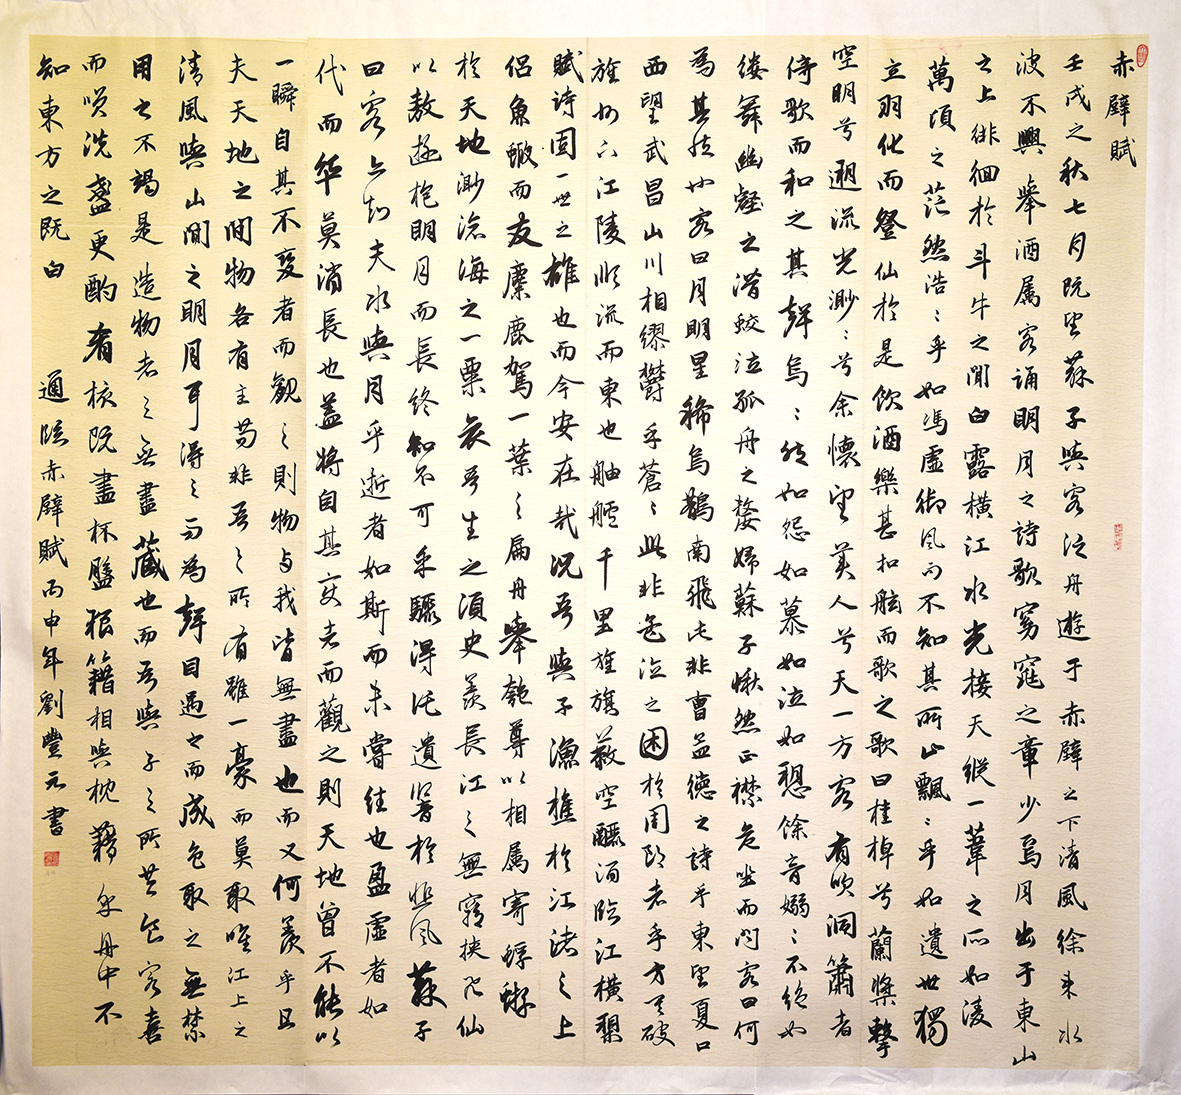 赤壁賦
壬戌之秋七月既望蘇子與客泛舟遊于赤壁之下清風徐來水
波不興舉酒属客誦明月之詩歌窈窕之章少焉月出于東山
之上徘徊於斗牛之間白露橫江水光接天縱一葦之所如淩
萬頃之茫然浩〻乎如馮虛御風而不知其所止飄〻乎如遺世獨
立羽化而登仙於是飲酒樂甚扣舷而歌之歌曰桂棹兮蘭槳擊
空明兮遡流光渺〻兮余懷望美人兮天一方客有吹洞簫者
倚歌而和之其聲烏〻然如怨如慕如泣如愬餘音嫋〻不絕如
縷舞幽壑之潛蛟泣孤舟之嫠婦蘇子愀然正襟危坐而問客曰何
為其然也客曰月明星稀烏鵲南飛此非曹孟德之詩乎東望夏口
西望武昌山川相繆欝乎蒼〻此非孟德之困於周郎者乎方其破
荊州下江陵順流而東也舳艫千里旌旗蔽空釃酒臨江橫槊
賦詩固一世之雄也而今安在哉況吾與子漁樵於江渚之上
侶魚蝦而友麋鹿駕一葉之扁舟舉匏尊以相属寄蜉蝣
於天地渺滄海之一粟哀吾生之須臾羨長江之無窮挾飛仙
以敖遊抱明月而長終知不可乎驟得託遺響於悲風蘇子
曰客亦知夫水與月乎逝者如斯而未嘗往也盈虛者如
代而卒莫消長也蓋將自其變者而觀之則天地曾不能以
一瞬自其不變者而觀之則物与我皆無盡也而又何羨乎且
夫天地之間物各有主苟非吾之所有雖一豪而莫取唯江上之
清風與山間之明月耳得之而為聲目遇之而成色取之無禁
用之不竭是造物者之無盡藏也而吾與子之所共食客喜
而笑洗盞更酌肴核既盡杯盤狼籍相與枕藉乎舟中不
知東方之既白 通臨赤壁賦丙申年劉豐元書